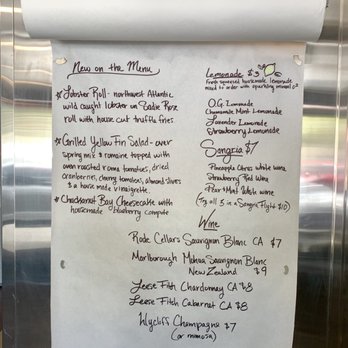 New on the Menu
☆ Lobster Roll- northwest Atlantic
wild caught lobster on Sadie Rose
roll with house cut truffle fries
☆ Grilled Yellow Fin Salad- over
spring mix & romaine topped with
oven roasted roma tomatoes, dried
cranberries, cherry tomatoes, almond slivers
& a house made vinaigrette.
☆ Chuckanut Bay Cheesecake with
housemade blueberry compote
Lemonade $3
Fresh squeezed housemade lemonade
mixed to order with sparkling mineral
O.G. Lemonade
Chamomile Mint Lemonade
Lavender Lemonade
Strawberry Lemonade
Sangria $7
Pineapple Citrus white wine
Strawberry Red Wine
Pear Mint White wine
(Try all 3 in a Sangria Flight $10)
Wine
Rude Cellars Sauvignon Blanc CA $7
Marlborough Sauvignon Blanc
New Zealand $9
Leese Fitch Chardonnay CA $8
Leese Fitch Cabernet CA $8
Wycliff Champagne $7
(or mimosa)